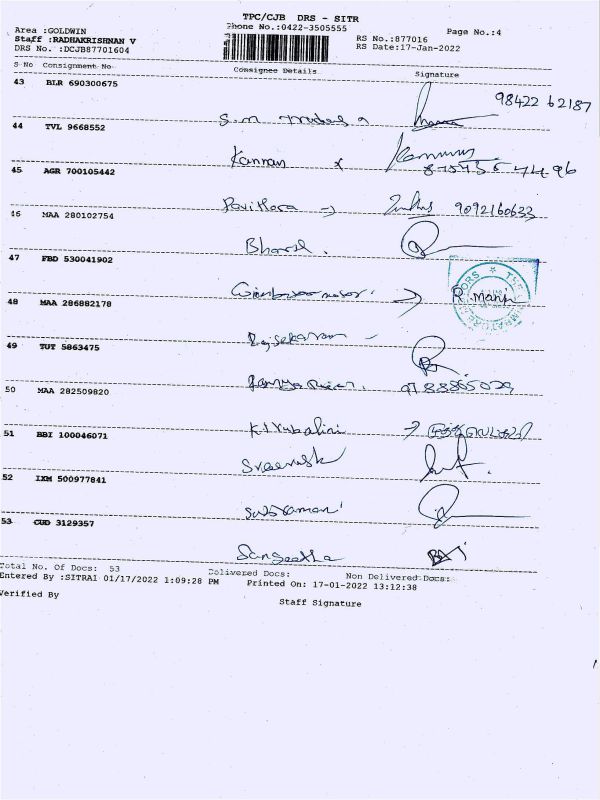 TPC/CJB DRS - SITR
Phone No.:0422-3505555
Page No.:4
Area :GOLDWIN
Staff :RADHAKRISHNAN V
RS No.:877016
DRS No. :DCJB87701604
RS Date:17-Jan-2022
S No Consignment No Consignee Details Signature
43 BLR 690300675
98422 62187
S.M
44 TVL 9668552
Kannan
45 AGR 700105442
Pavithra → 9092160633
46 MAA 280102754
Bharat.
47 FBD 530041902
→ R.Mani
48 MAA 286882178
Rajsekaran
49 TUT 5863475
50 MAA 282509820
→
51 BBI 100046071
52 IXM 500977841
53 CUD 3129357
Sangeetha
Total No. Of Docs: 53 Delivered Docs: Non Delivered Docs:
Entered By :SITRA1 01/17/2022 1:09:28 PM Printed On: 17-01-2022 13:12:38
Verified By
Staff Signature